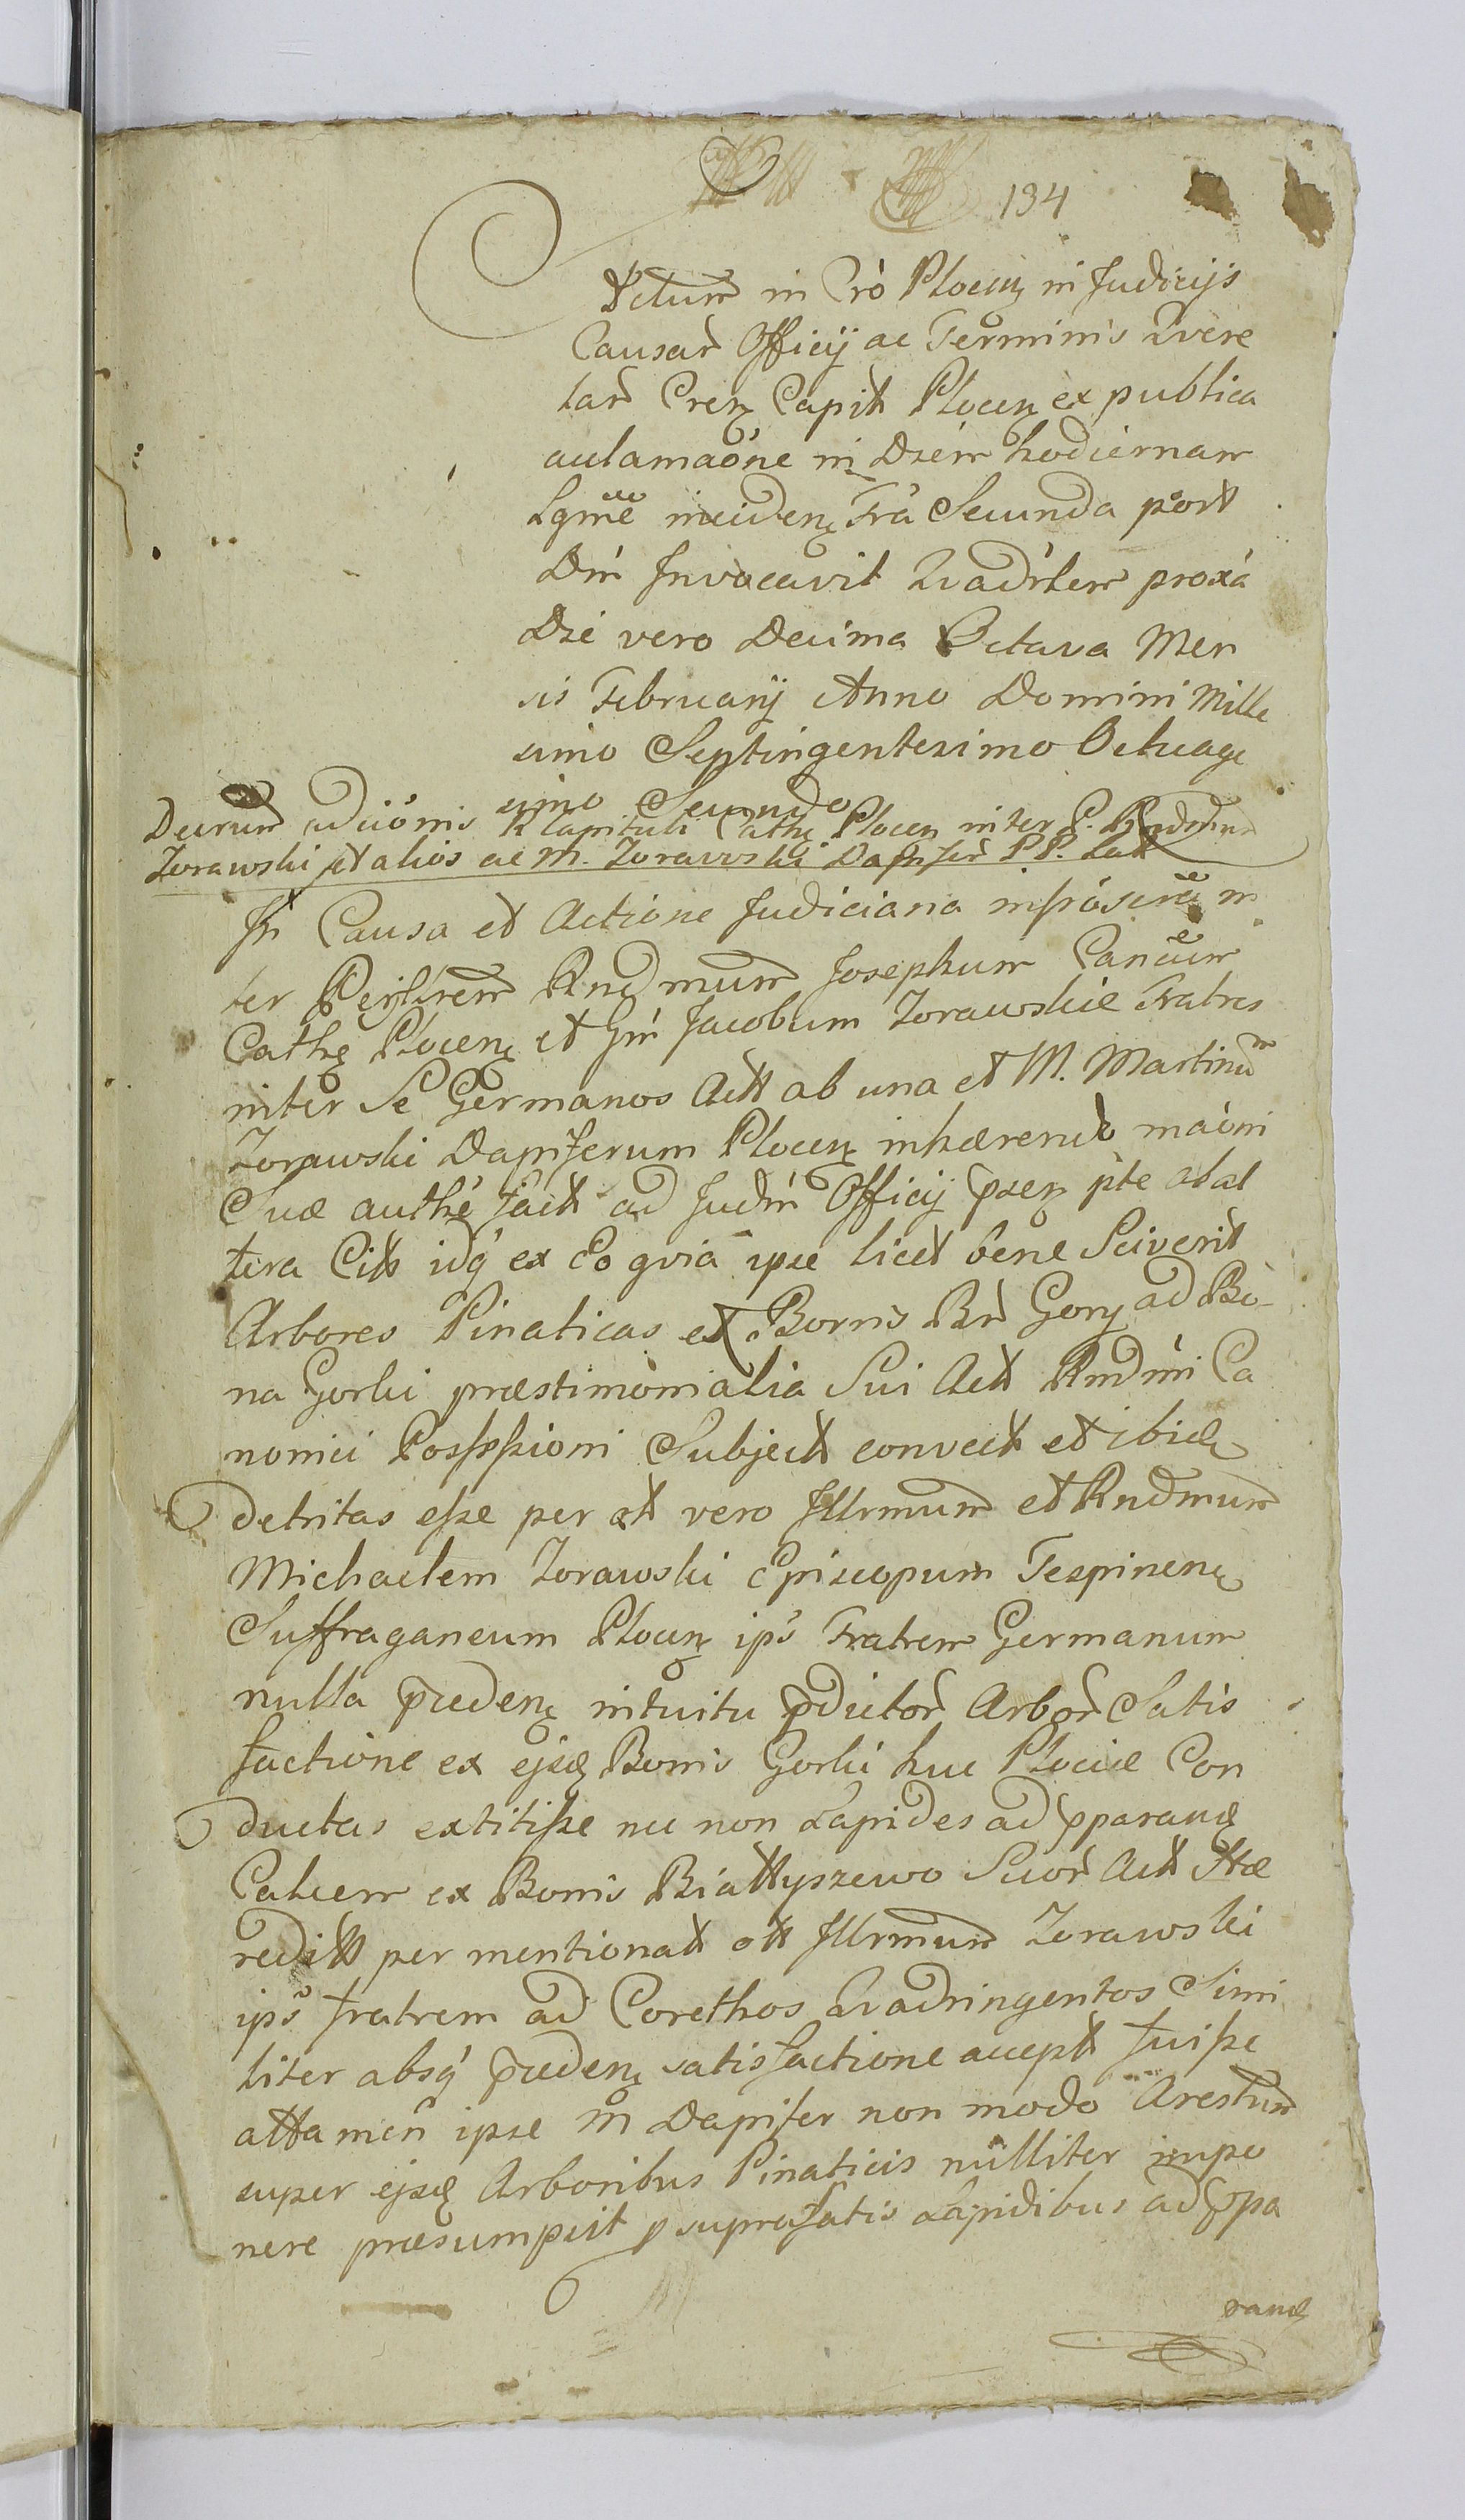 134
Actum in Cró Plocen in Judicijs
Causar Officij ac Terminis Qvere
lar Cren Capitt Plocen ex publica
acclamaone in Diem hodiernam
Lgme inciden Fra Secunda post
Dm Invocavit Qvadrlem proxa
Die vero Decima Octava Men
sis Februarij Anno Domini Mille
simo Septingentesimo Octuage
simo Secundo
Decrum adcionis R Capituli Cathe Plocen inter P. Rndmum
Zorawski et alios ac M. Zorawski Dapifer PP. Latt
In Causa et Actione Judiciaria infrascra in
ter Perillrem Rndmum Josephum Cancum
Cathe Plocen et Gm Jacobum Zorawskie Fratres
inter Se Germanos Actt ab una et M. Martinum
Zorawski Dapiferum Plocen inhærendo maoni
Suæ authe factt ad Judm Officij psen pte ab al
tera Citt idq ex Eo qvia ipse licet bene Sciverit
Arbores Pinaticas ex Bonis Rr Gory ad Bo-
na Gorki præstimonialia Sui Actt Rndmi Ca
nonici Possessioni Subjectt convectt et ibid
detritas esse per ott vero Illrmum et Rndmum
Michaelem Zorawski Episcopum Tespinen
Suffraganeum Plocen ips Fratrem Germanum
nulla præeden intuitu pdictor Arbor Satis
factione ex ejsd Bonis Gorki huc Plociæ Con
ductas extitisse nec non Lapides ad pparand
Calcem ex Bonis Białłyszewo Suor Actt Hæ
reditt per mentionatt ott Illrmum Zorawski
ips fratrem ad Corethos Qvadringentos Simi
liter absq præeden satisfactione acceptt fuisse
attamen ipse M Dapifer non modo Arestum
super ejsd Arboribus Pinaticis nulliter impo
nere præsumpsit p suprafatis Lapidibus ad ppa
rand